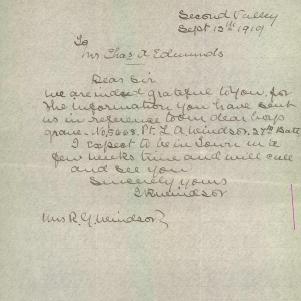 Second Valley
Sept 13th 1919
To
Mr Chas A Edmunds
Dear Sir
We are indeed grateful to you, for
the information you have sent
us in reference to our dear boys
grave. No, 5668. Pt. L A Windsor. 27th Batt
I expect to be in Town in a
few weeks time and will call
and see you
Sincerely yours
Windsor
Mrs R. G. Windsor